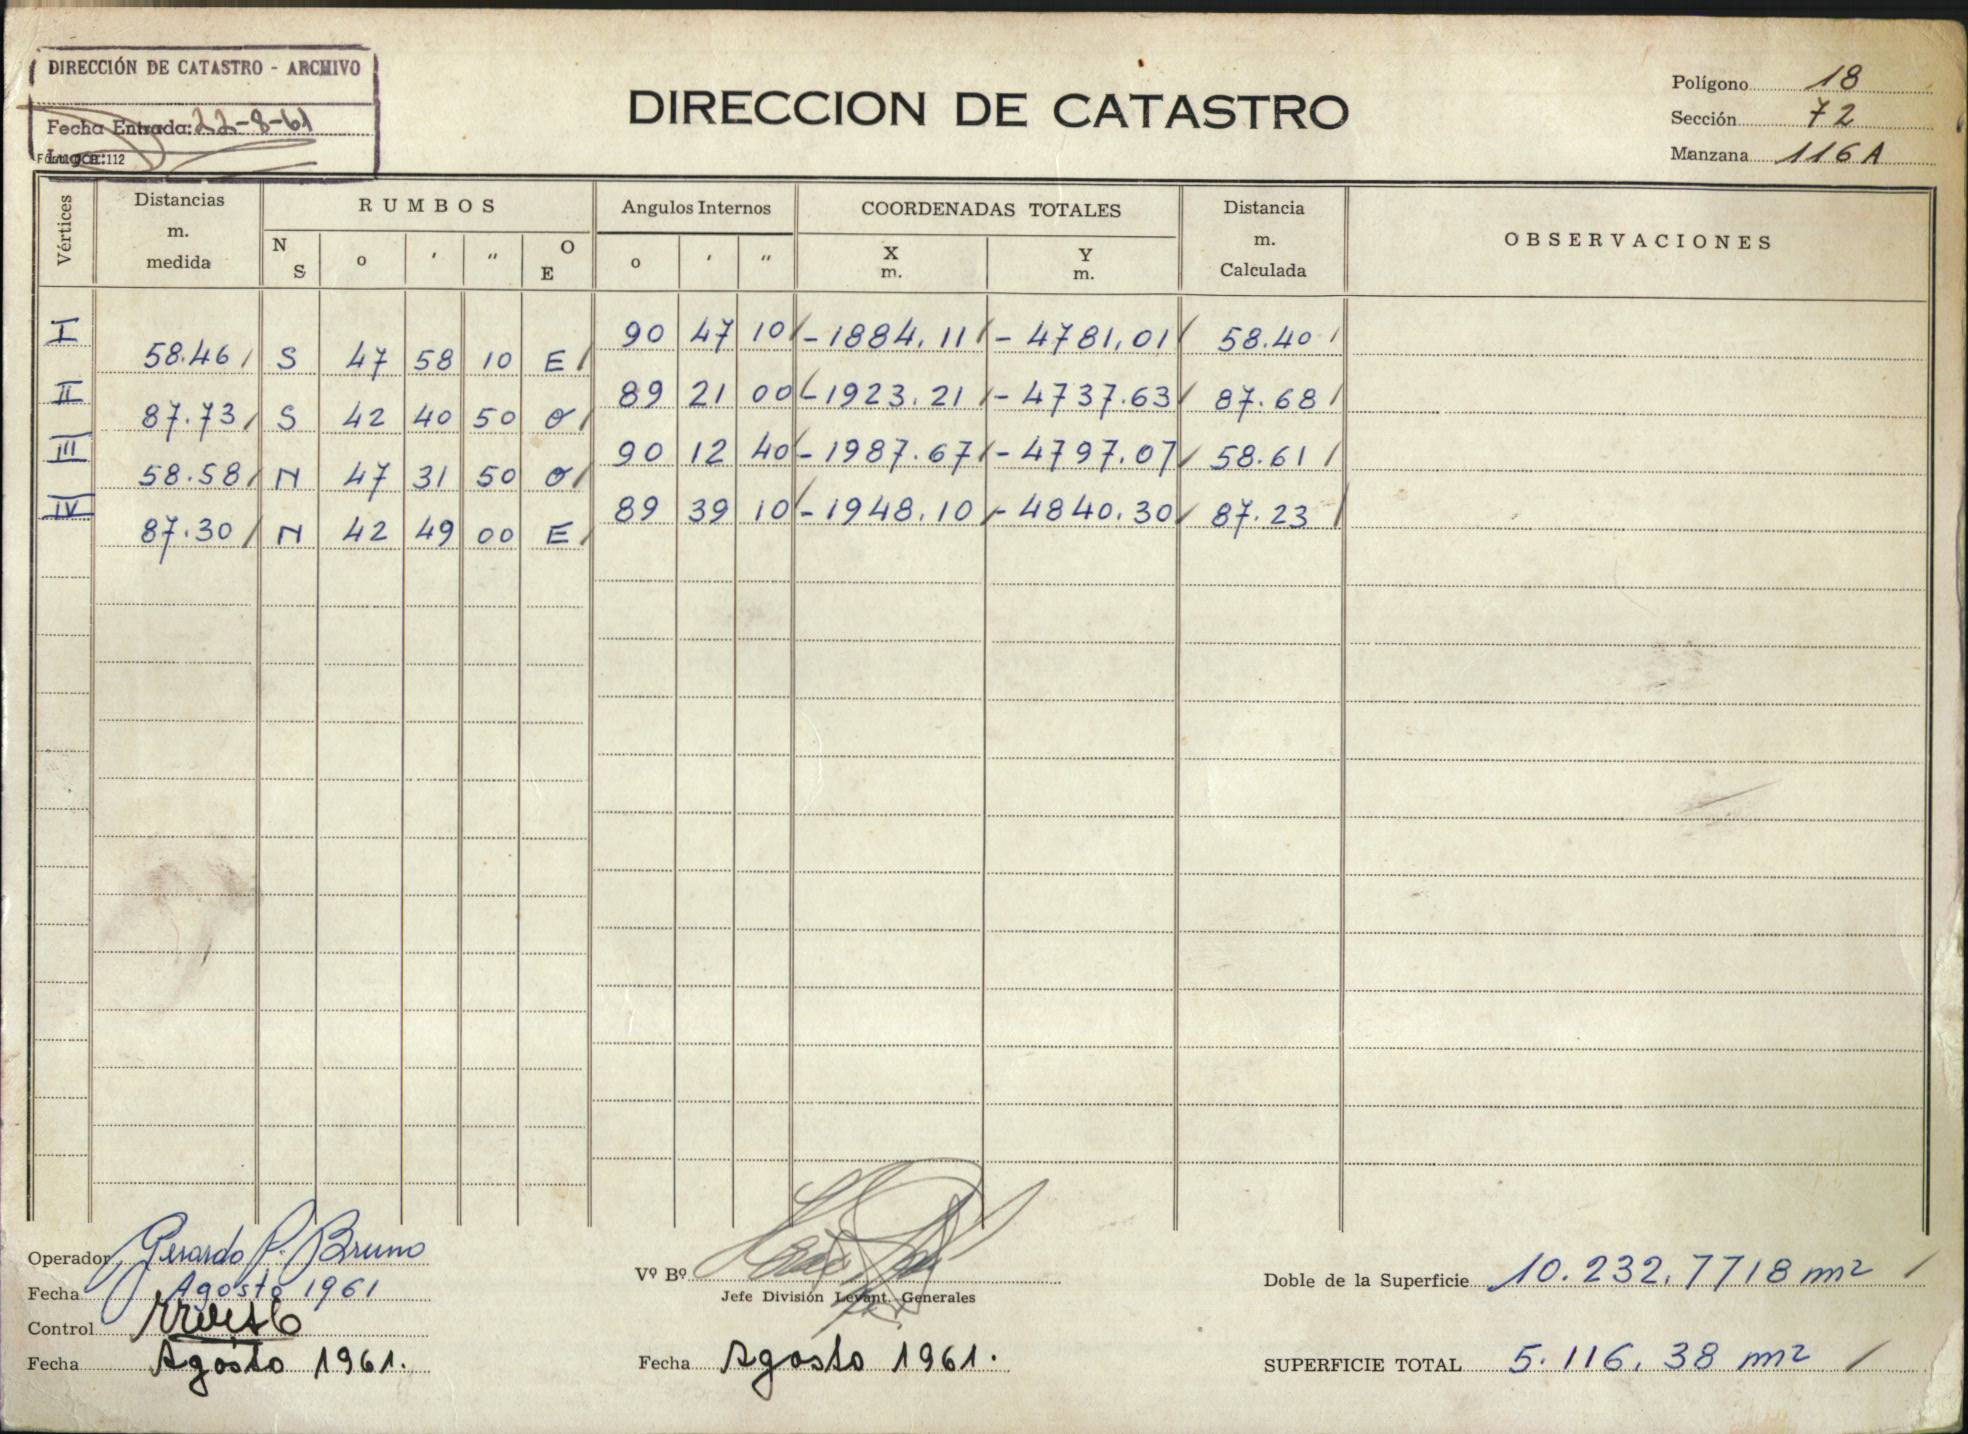 DIRECCIÓN DE CATASTRO - ARCHIVO
Fecha Entrada: 22-8-61
DIRECCION DE CATASTRO
Polígono 18
Sección 72
Manzana 116 A
Vértices
Distancias m. medida
RUMBOS
Angulos Internos
COORDENADAS TOTALES
Distancia m. Calculada
OBSERVACIONES
N S o ' " O E o ' " X m. Y m.
I 90 47 10 -1884.11 -4781.01 58.40
58.46 S 47 58 10 E
II 89 21 00 -1923.21 -4737.63 87.68
87.73 S 42 40 50 O
III 90 12 40 -1987.67 -4797.07 58.61
58.58 N 47 31 50 O
IV 89 39 10 -1948.10 -4840.30 87.23
87.30 N 42 49 00 E
Operador Gerardo P. Bruno
Fecha Agosto 1961
Control
Fecha Agosto 1961.
Vº Bº
Jefe División Levant. Generales
Fecha Agosto 1961.
Doble de la Superficie 10.232,7718 m2
SUPERFICIE TOTAL 5.116,38 m2